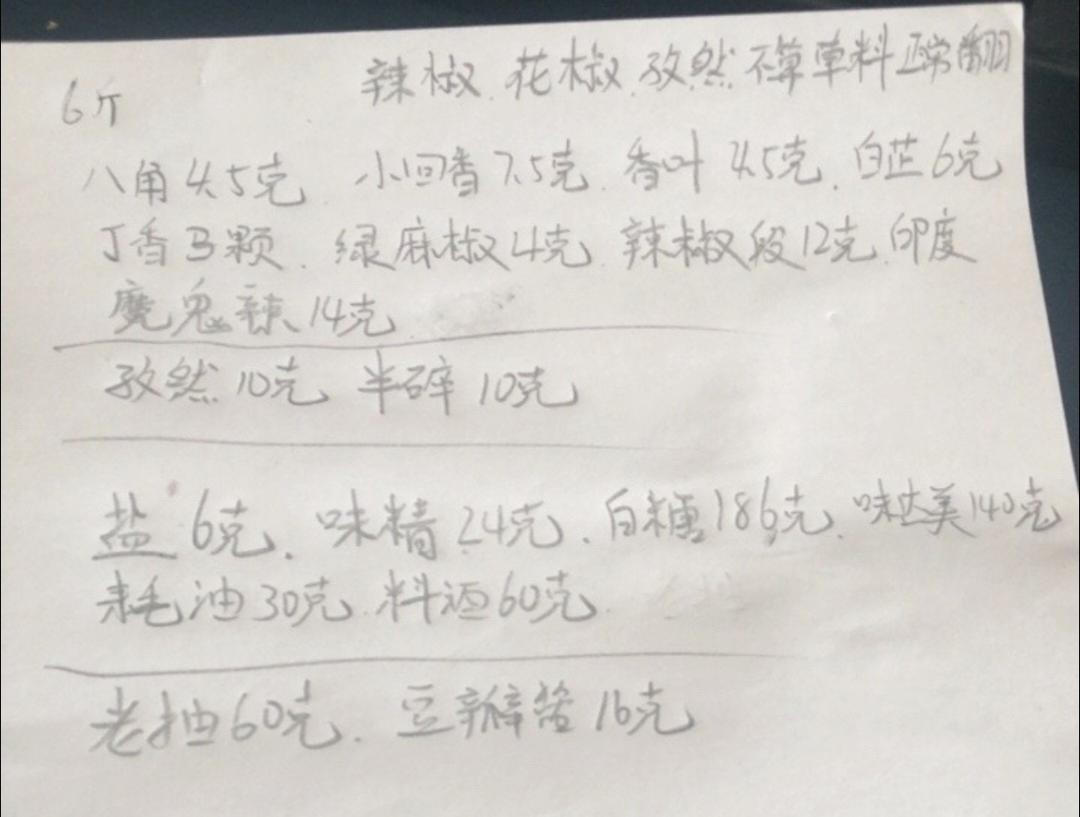 辣椒.花椒.孜然不算草料正常翻
6斤
八角4.5克 小回香7.5克.香叶4.5克.白芷6克
丁香3颗.绿麻椒4克.辣椒段12克.印度
魔鬼辣14克
孜然10克 半碎10克
盐6克.味精24克.白糖186克.味达美140克
耗油30克.料酒60克
老抽60克.豆瓣酱16克